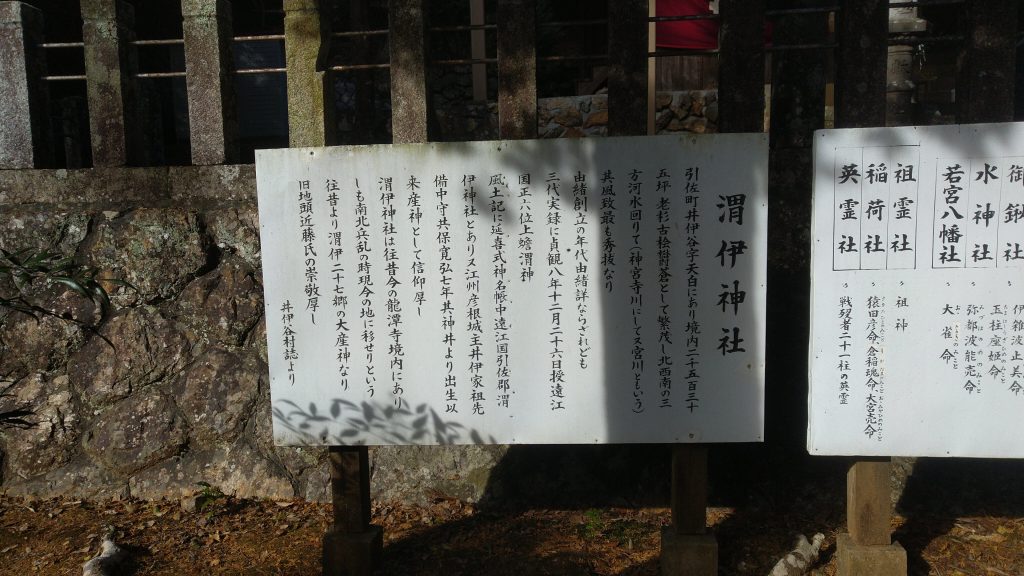 渭伊神社
引佐町井伊谷字天白にあり境内二千五百三十
五坪 老杉古桧樹蒼として繁茂し北西南の三
方河水回りて(神宮寺川にしてス宮川ともいう)
其風致最も秀抜なり
由緒創立の年代由緒詳ならざれども
三代実録に貞観八年十二月二十六日授遠江
国正六位上蟾渭神
風土記に延喜式神名帳中遠江国引佐郡、渭
伊神社とありス江州彦根城主井伊家祖先
備中守共保寛弘七年其神井より出生以
来産神として信仰厚し
渭伊神社は往昔今の龍潭寺境内にあり
しも南北兵乱の時現今の地に移せりという
往昔より渭伊二十七郷の大産神なり
旧地頭近藤氏の崇敬厚し
井伊谷村誌より
御鍬社
伊雑波止美命
玉柱座姫命
水神社
弥都波能売命
若宮八幡社
大雀命
祖霊社
祖神
稲荷社
猿田彦命、倉稲魂命、大宮売命
英霊社
戦歿者二十一柱の英霊